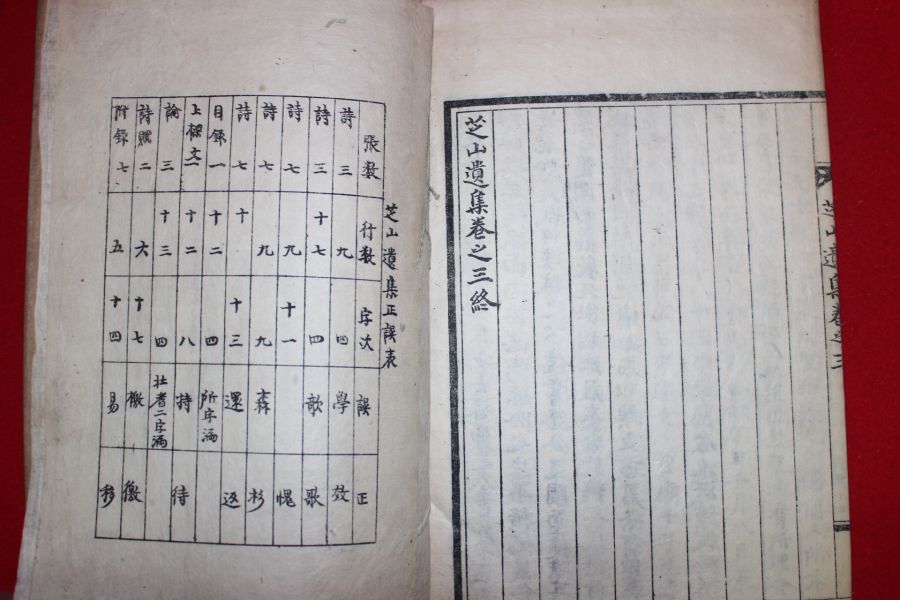 芝山遺集卷之三
芝山遺集卷之三終
芝山遺集正誤表
張數 行數 字次 誤 正
詩三 九 四 學 效
詩三 十七 四 歌
詩七 九 十一 愧
詩七 九 九 森 杉
詩七 十 十三 還 返
目錄一 十二 四 所字漏
上樑文一 十二 八 持 待
論三 十三 四 壯者二字漏
詩賦二 六 十七
附錄七 五 十四 易 移